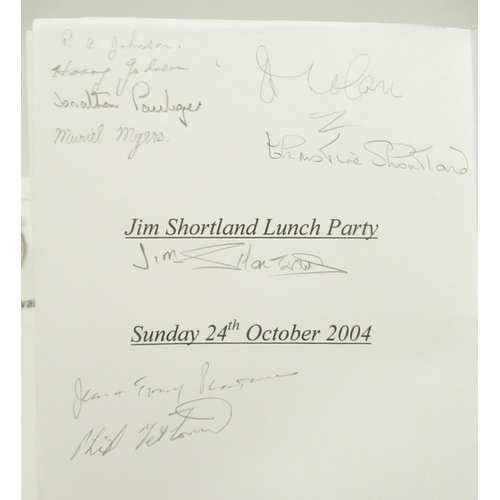 R A Johnson.
Johnson
Jonathan
Muriel Myers.
Nolan
Christine Shortland
Jim Shortland Lunch Party
Jim Shortland
Sunday 24th October 2004
Jean +
Phil